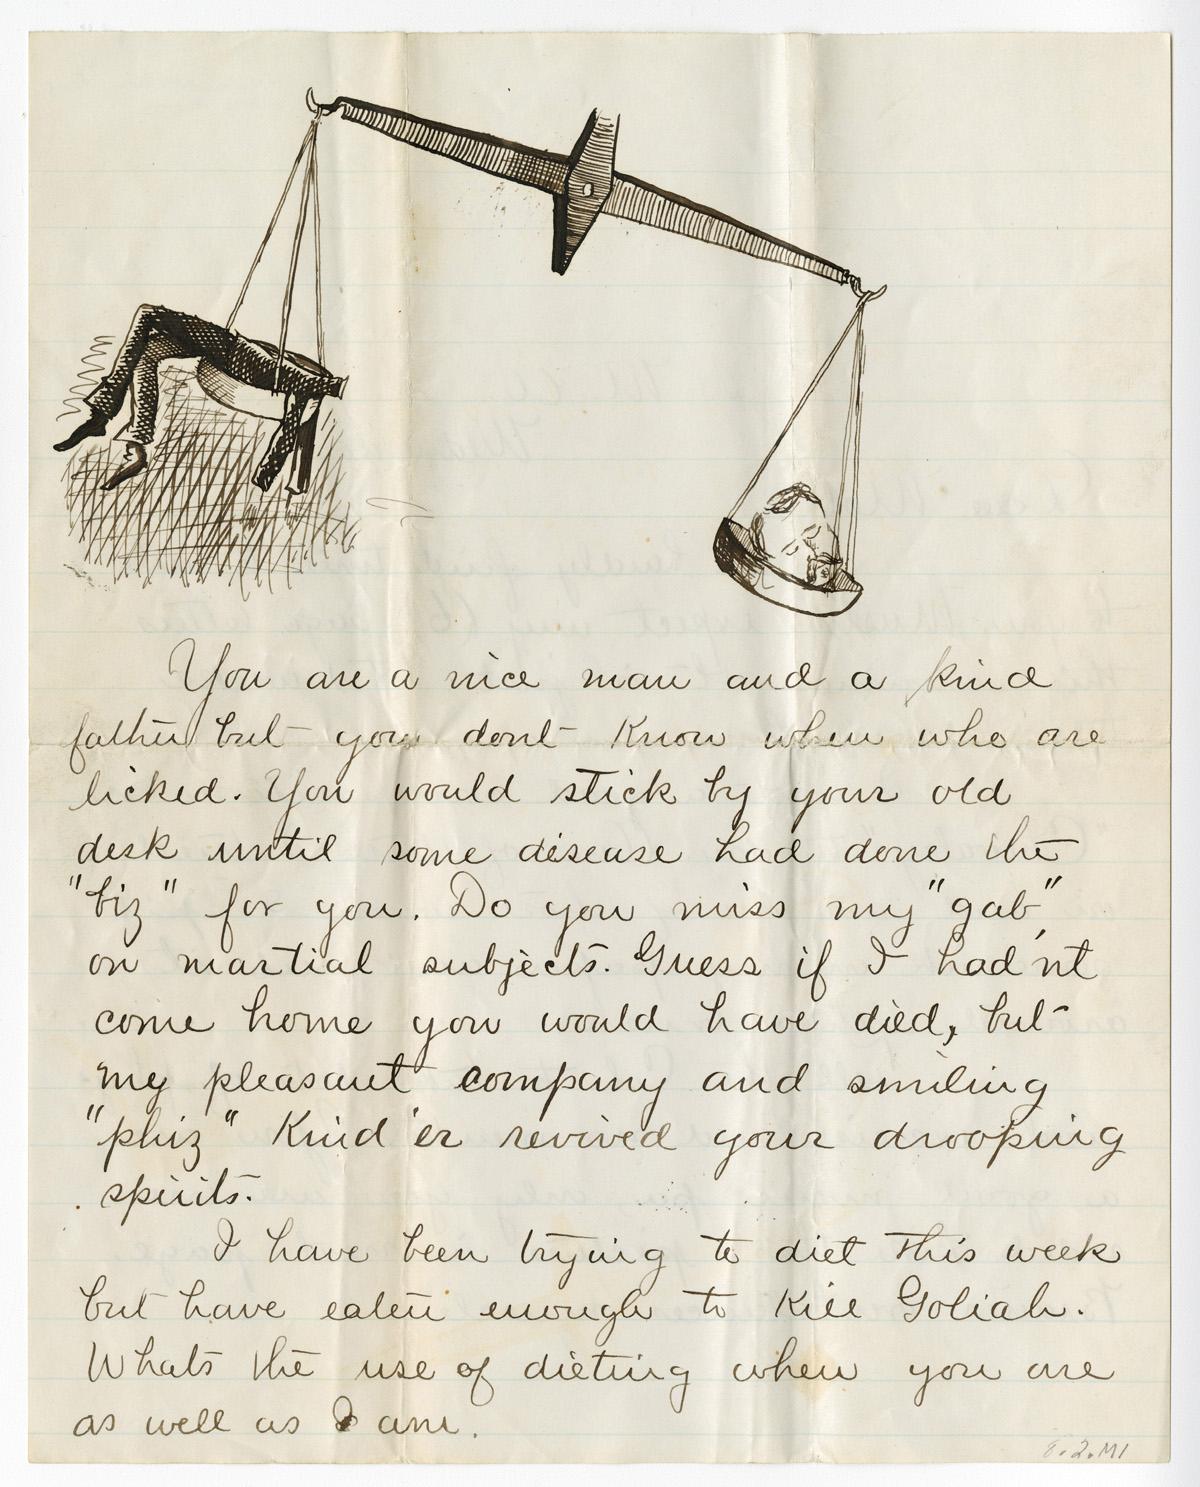 You are a nice man and a kind
father but you dont Know when who are
licked. You would stick by your old
desk until some disease had done the
"biz" for you. Do you miss my "gab",
on martial subjects. Guess if I had'nt
come home you would have died, but
my pleasant company and smiling
"phiz" Kind'er revived your drooping
spirits.
I have been trying to diet this week
but have eaten enough to Kill Goliah.
Whats the use of dieting when you are
as well as I am.
8.2.M1